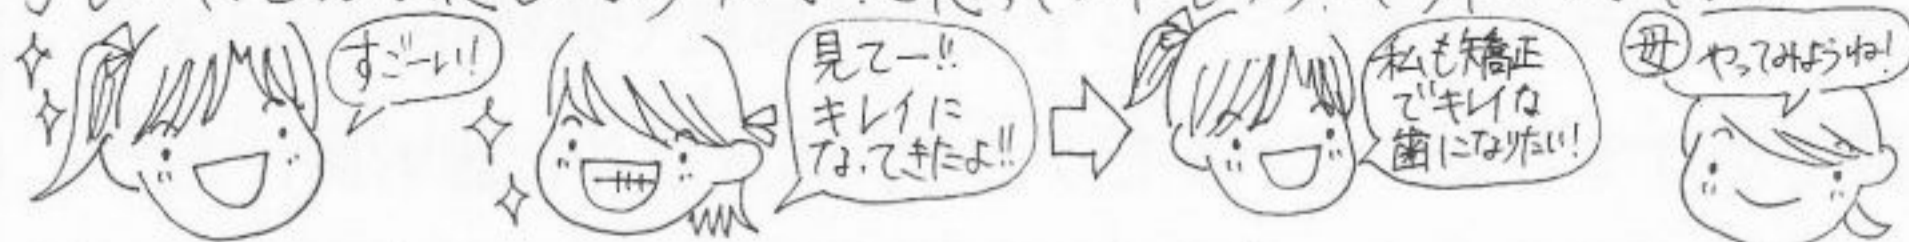 すごーい!
見てー!!
キレイに
なってきたよ!!
私も矯正
でキレイな
歯になりたい!
母
やってみようね!